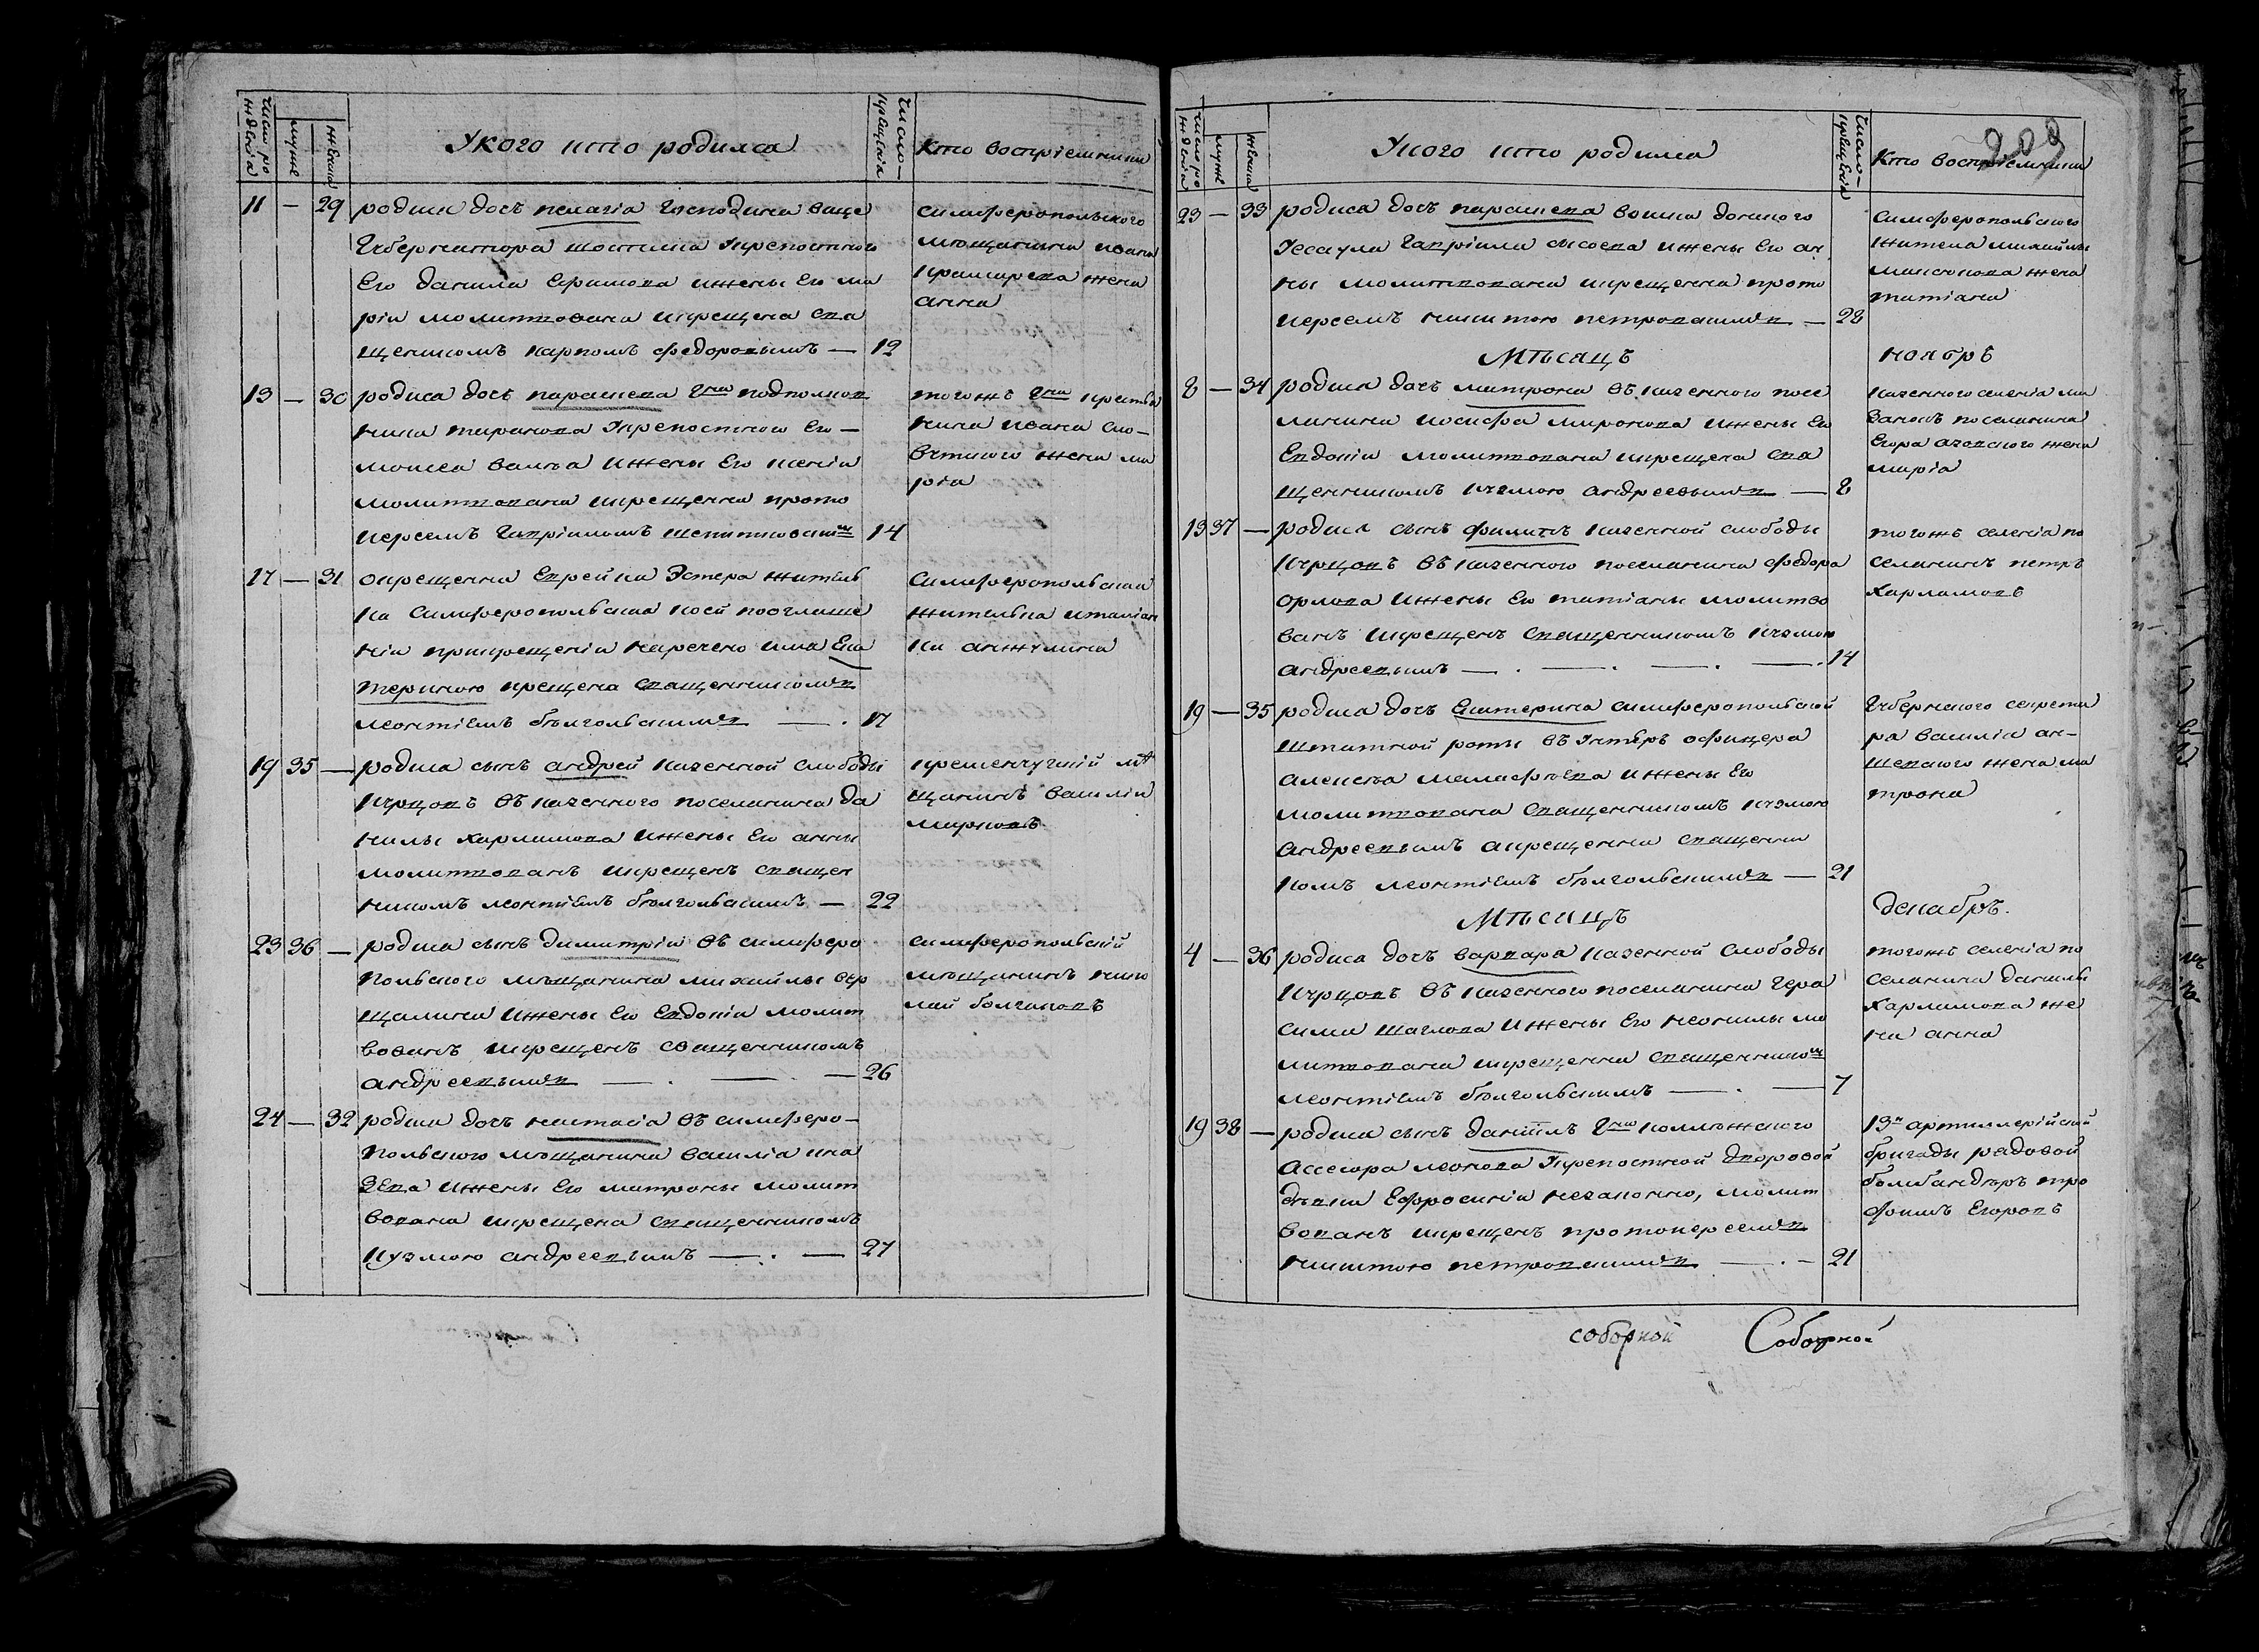 Число рождения
мужс
женска
У кого кто родился
Число крещения
Кто восприемники
11 — 29 родися дочъ пелагіа Господина вице
Губернатора шостака Укрепостного
Его данила Ефимова ижены Его ма
ріи молитвована икрещена Свя
щенникомъ карпомъ федоровымъ — 12
симферопольского
мъщанина ивана
жена
анна
13 — 30 родиса дочъ параскева Гна подполков
ника таранова Укрепостного Его —
моисеа ижены Его ксеніи
молитвована икрещенна прото
иереемъ Гавріиломъ 14
тогожъ Гна крестья
нина ивана сло-
жена ма
ріа
17 — 31 окрещенна Еврейка Эстера житель
ка Симферопольская коей
ніи прикрещеніи наречено има Ека
териною крещена Священникомъ
леонтіемъ — . 17
Симферопольская
жителька италіан
ка анжулина
19 35 — родиса сынъ андрей казенной слободы
Курцовъ Въ казенного поселанина да
нилы харламова ижены Его анны
молитвованъ икрещенъ священ
никомъ леонтіемъ — 22
кременчугскій мъ
щанинъ василій
марковъ
23 36 — родиса сынъ димитрій Въ симферо
польского мъщанина михайлы
щалина ижены Его Евдокіи молит
вованъ икрещенъ священникомъ
андреевымъ — . — . — 26
симферопольскій
мъщанинъ нико
лай
24 — 32 родиса дочъ настасіа Въ симферо-
польского мъщанина василіа кна
зева ижены Его матроны молит
вована икрещена священникомъ
кузмою андреевымъ — . — 27
209
Число рождения
мужс
женска
У кого кто родился
Число крещения
Кто восприемники
23 — 33 родиса дочъ параскева воиска донского
Уесаула Гавріила сысоева ижены Его ан
ны молитвована икрещенна прото
иереемъ никитою петровскимъ — 28
Симферопольского
жителя михайлы
жена
татіана
Мъсяцъ ноябръ
8 — 34 родиса дочъ матрона Въ казенного посе
ланина иосифа миронова ижены Его
Евдокіи молитвована икрещена Свя
щенникомъ кузмою андреевымъ — 8
казенного селеніа ма
занокъ поселанина
Егора жена
маріа
13 37 — родиса сынъ филипъ казенной слободы
Курцовъ Въ казенного поселанина федора
орлова ижены Его татіаны молитво
ванъ икрещенъ священникомъ кузмою
андреевымъ — . — . — . — . 14
тогожъ селеніа по
селанинъ петръ
харламовъ
19 — 35 родиса дочъ Екатерина симферопольской
Штатной роты Въ Унтеръ офицера
алексъа малафъева ижены Его
молитвована священникомъ кузмою
андреевымъ акрещенна священни
комъ леонтіемъ — 21
Губернского секрета
ра василіа ан-
жена ма
трона
Мъсяцъ декабръ.
4 — 36 родиса дочъ варвара казенной слободы
Курцовъ Въ казенного поселанина Гера
сима ижены Его неонилы мо
литвована икрещенна священником
леонтіемъ — . — 7
тогожъ селеніа по
селанина данилы
харламова же
на анна
19 38 — родиса сынъ даніилъ Гна коллежского
Ассесора леонова Укрепостной дворовой
дъвки Ефросиніи незаконно, молит
вованъ икрещенъ протоиереемъ
никитою петровскимъ — . — 21
13й артиллерійской
бригады радовой
бомбандъръ тро
фимъ Егоровъ
соборной Соборной